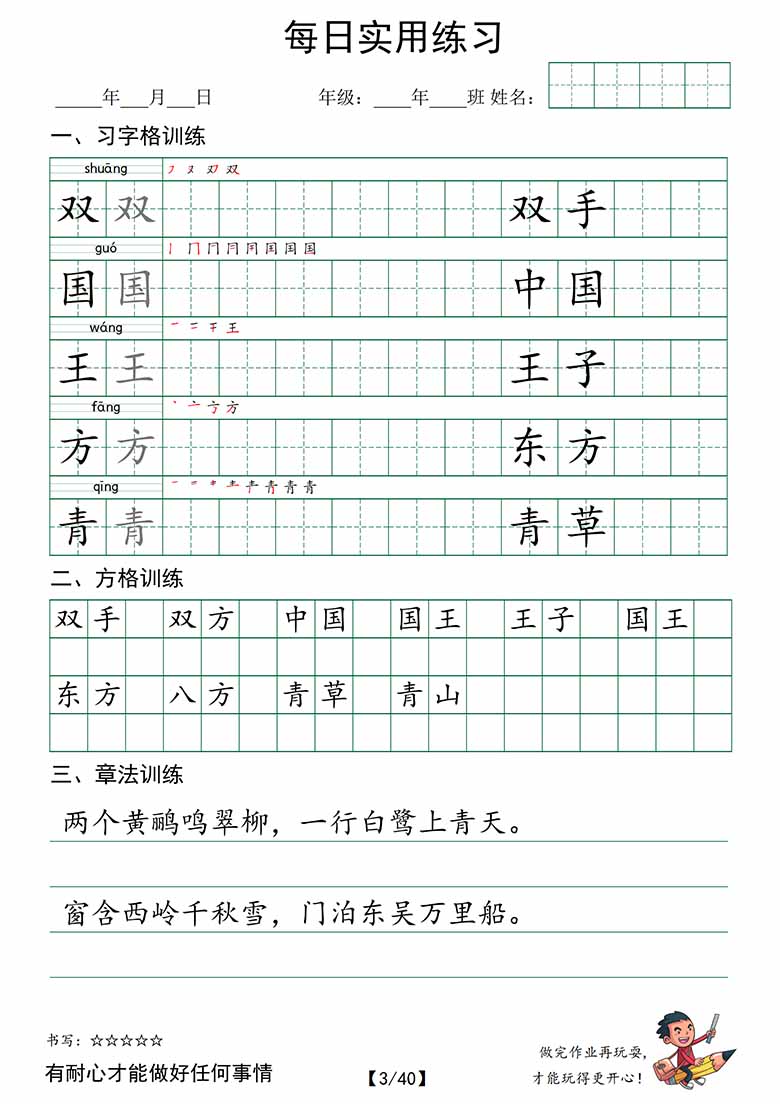 每日实用练习
_____年___月___日 年级：____年____班 姓名：
一、习字格训练
shuāng
双 双 双 手
guó
国 国 中 国
wáng
王 王 王 子
fāng
方 方 东 方
qīng
青 青 青 草
二、方格训练
双手 双方 中国 国王 王子 国王
东方 八方 青草 青山
三、章法训练
两个黄鹂鸣翠柳，一行白鹭上青天。
窗含西岭千秋雪，门泊东吴万里船。
书写：☆☆☆☆☆
有耐心才能做好任何事情
【3/40】
做完作业再玩耍，
才能玩得更开心！